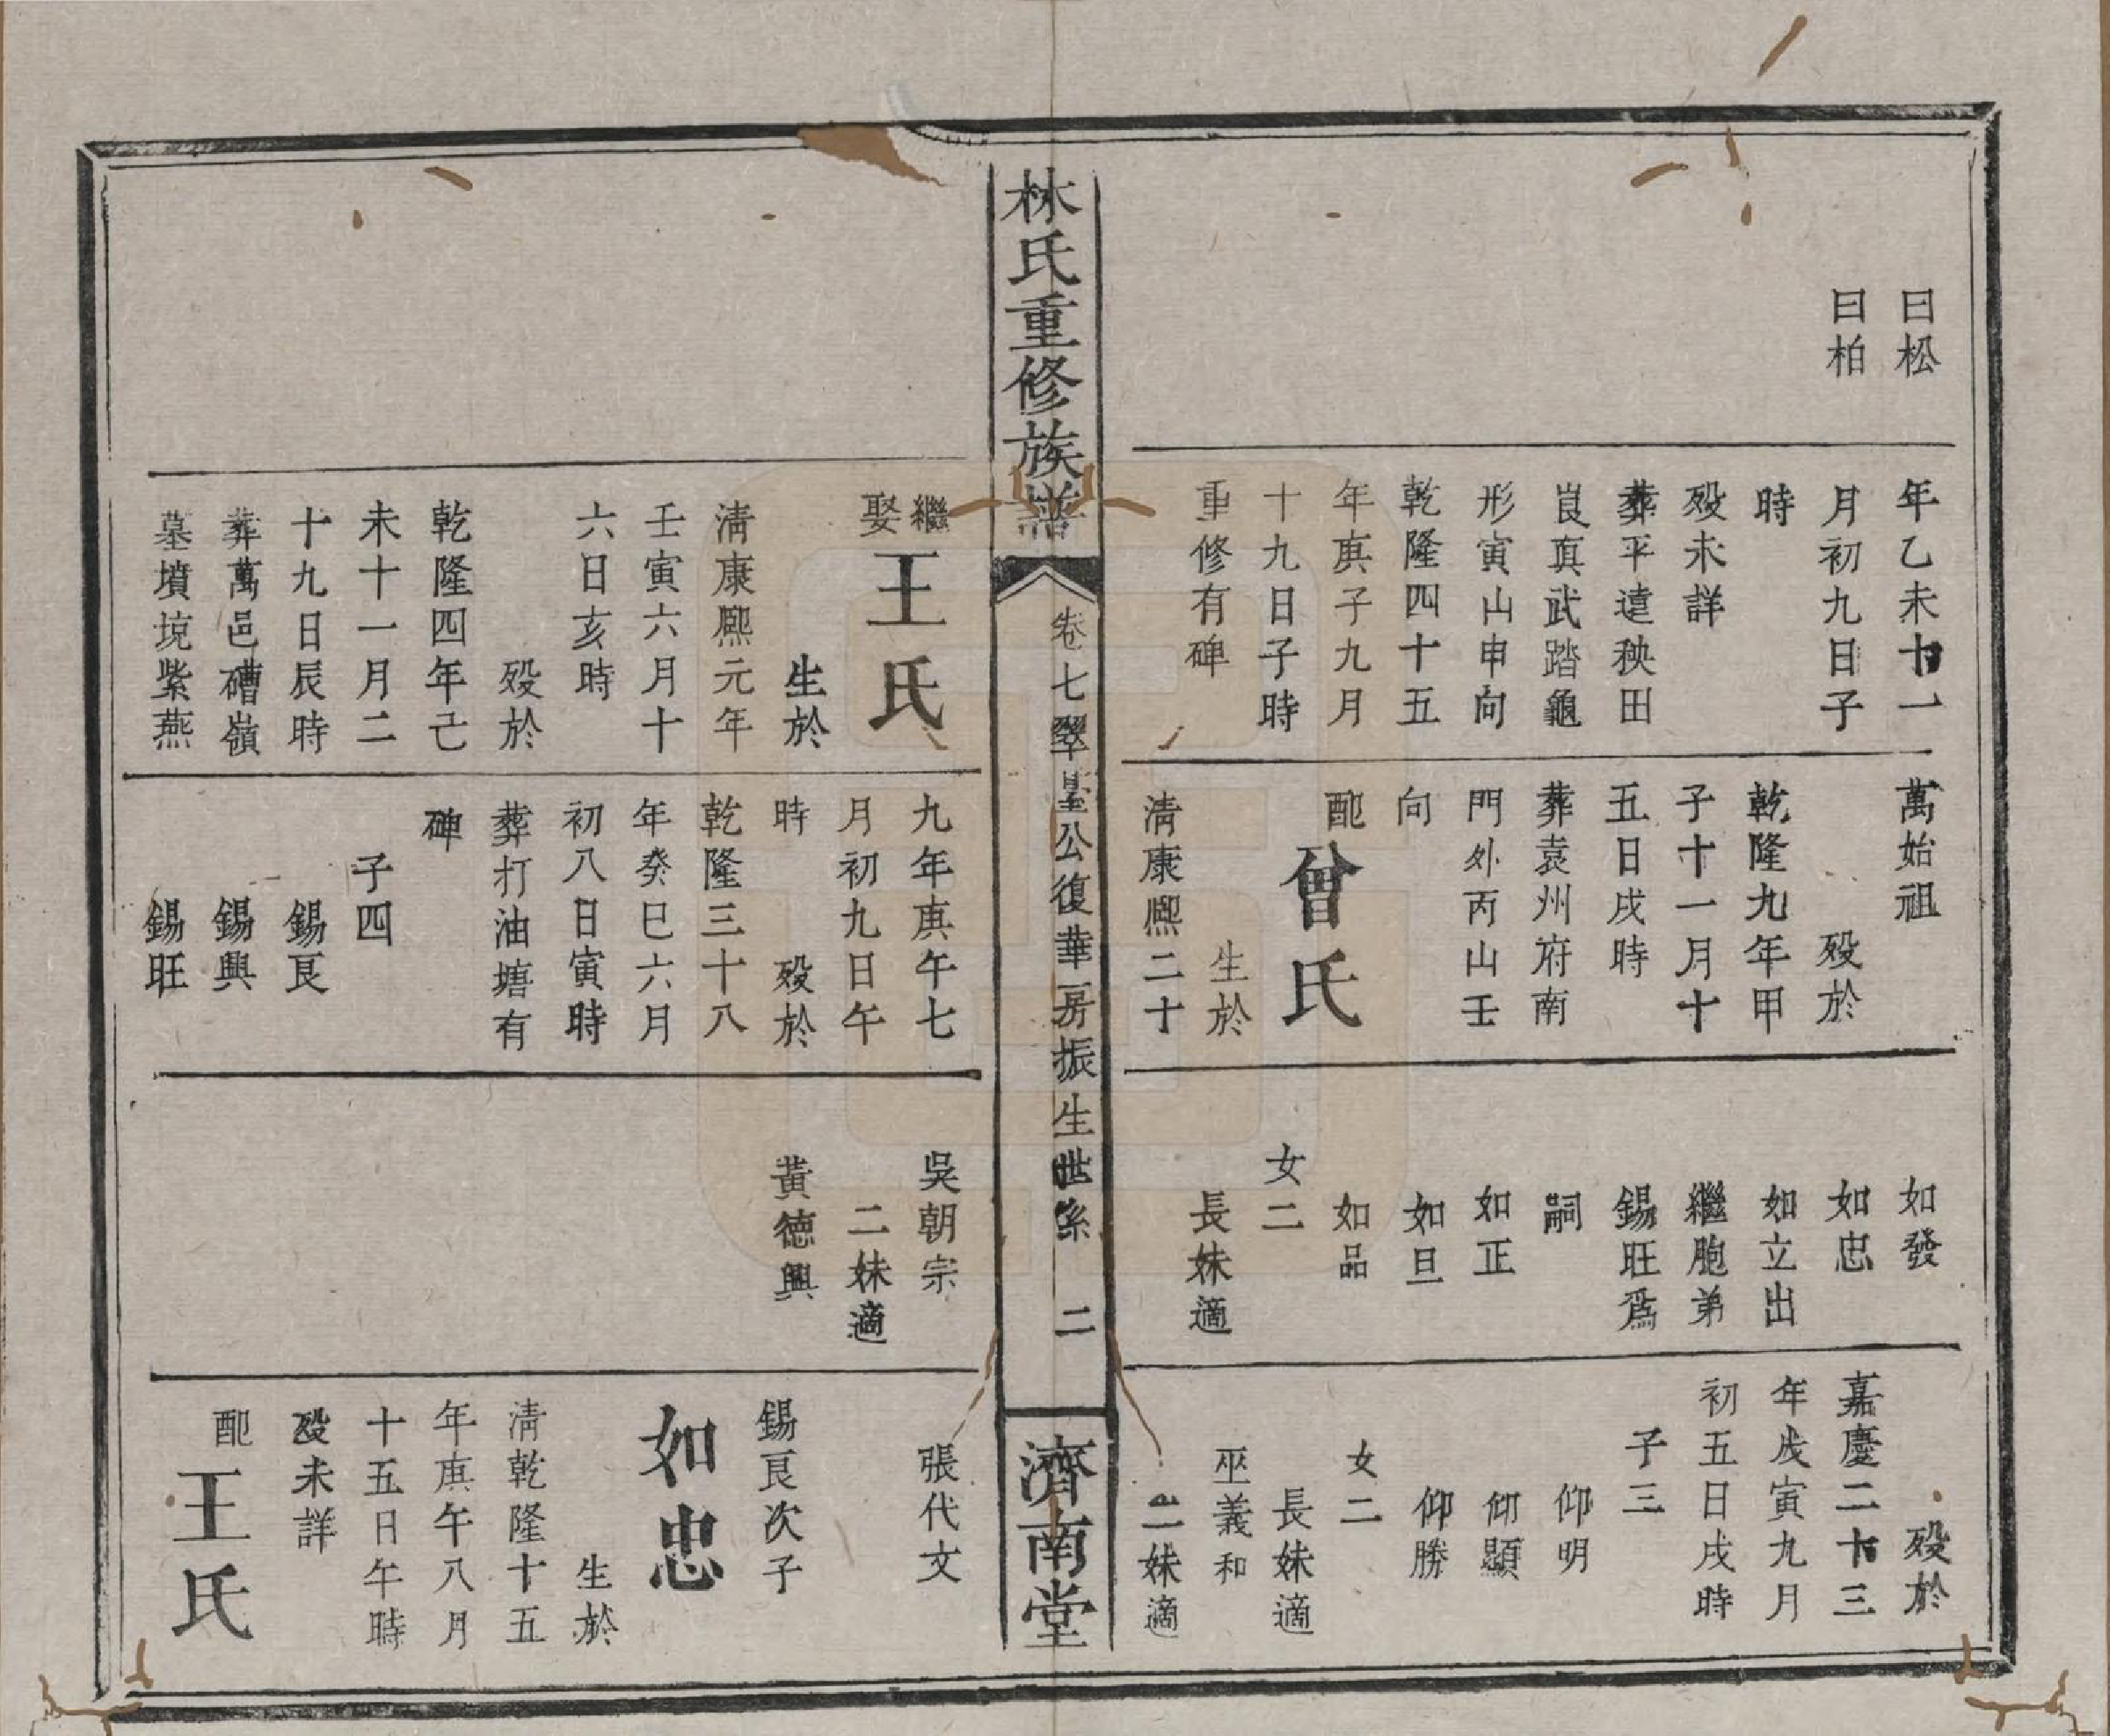 曰松
曰柏
年乙未十一
月初九日子
時
歿未詳
葬平遠秧田
崀真武踏龜
形寅山申向
乾隆四十五
年庚子九月
十九日子時
重修有碑
萬始祖
歿於
乾隆九年甲
子十一月十
五日戌時
葬袁州府南
門外丙山壬
向
配
曾氏
生於
清康熙二十
如發
如忠
如立出
繼胞弟
錫旺為
嗣
如正
如旦
如品
女二
長妹適
歿於
嘉慶二十三
年戊寅九月
初五日戌時
子三
仰明
仰顯
仰勝
女二
長妹適
巫義和
二妹適
林氏重修族譜
卷七翠臺公復華房振生世系 二
濟南堂
繼娶王氏
生於
清康熙元年
壬寅六月十
六日亥時
歿於
乾隆四年己
未十一月二
十九日辰時
葬萬邑礌嶺
墓墳境紫燕
九年庚午七
月初九日午
時 歿於
乾隆三十八
年癸巳六月
初八日寅時
葬打油塘有
碑
子四
錫良
錫興
錫旺
吳朝宗
二妹適
黃德興
張代文
錫良次子
如忠
生於
清乾隆十五
年庚午八月
十五日午時
歿未詳
配王氏